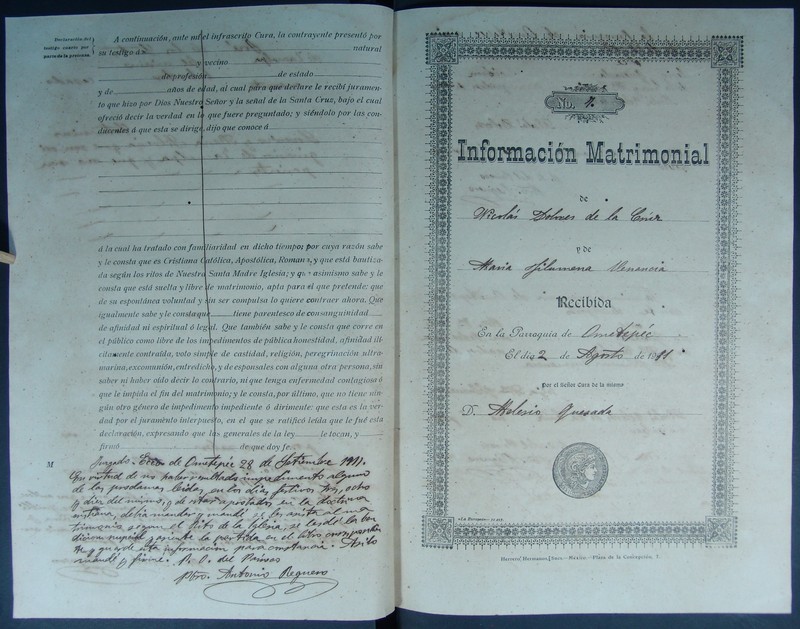 Declaración del
testigo cuarto por
parte de la pretensa.
A continuación, ante mí el infrascrito Cura, la contrayente presentó por
su testigo á
natural
y vecino
de profesión de estado
y de años de edad, al cual para que declare le recibí juramen-
to que hizo por Dios Nuestro Señor y la señal de la Santa Cruz, bajo el cual
ofreció decir la verdad en lo que fuere preguntado; y siéndolo por las con-
ducentes á que esta se dirige, dijo que conoce á
á la cual ha tratado con familiaridad en dicho tiempo; por cuya razón sabe
y le consta que es Cristiana Católica, Apostólica, Romana, y que está bautiza-
da según los ritos de Nuestra Santa Madre Iglesia; y que asimismo sabe y le
consta que está suelta y libre de matrimonio, apta para el que pretende; que
de su espontánea voluntad y sin ser compulsa lo quiere contraer ahora. Que
igualmente sabe y le consta que tiene parentesco de consanguinidad
de afinidad ni espiritual ó legal. Que también sabe y le consta que corre en
el público como libre de los impedimentos de pública honestidad, afinidad ilí-
citamente contraída, voto simple de castidad, religión, peregrinación ultra-
marina, excomunión, entredicho, y de esponsales con alguna otra persona, sin
saber ni haber oído decir lo contrario, ni que tenga enfermedad contagiosa ó
que le impida el fin del matrimonio; y le consta, por último, que no tiene nin-
gún otro género de impedimento impediente ó dirimente: que esta es la ver-
dad por el juramento interpuesto, en el que se ratificó leída que le fué esta
declaración, expresando que las generales de la ley le tocan, y
firmó de que doy fe.
M
Juzgado Ecco de Ometepec 28 de Setiembre 1911.
En virtud de no haber resultado impedimento alguno
de las proclamas leídas en los días festivos tres, ocho
y diez del mismo, y de estar aprobados en la doctrina
cristiana, debía mandar y mandé se les asista al ma-
trimonio según el Rito de la Iglesia, se les dé la ben
dición nupcial y asiente la partida en el libro correspondien
te y guarde esta información para constancia. Así lo
mandé y firmé. P. O. del Párroco
Pbro. Antonio Reguero
No. 7.
Información Matrimonial
de
Nicolás Dolores de la Cruz
y de
Maria Filumena Venancia
Recibida
En la Parroquia de Ometepéc
El día 2 de Agosto de 1911
Por el Señor Cura de la misma
D. Melesio Quesada
Herrero Hermanos, Sucs.—México.—Plaza de la Concepción, 7.